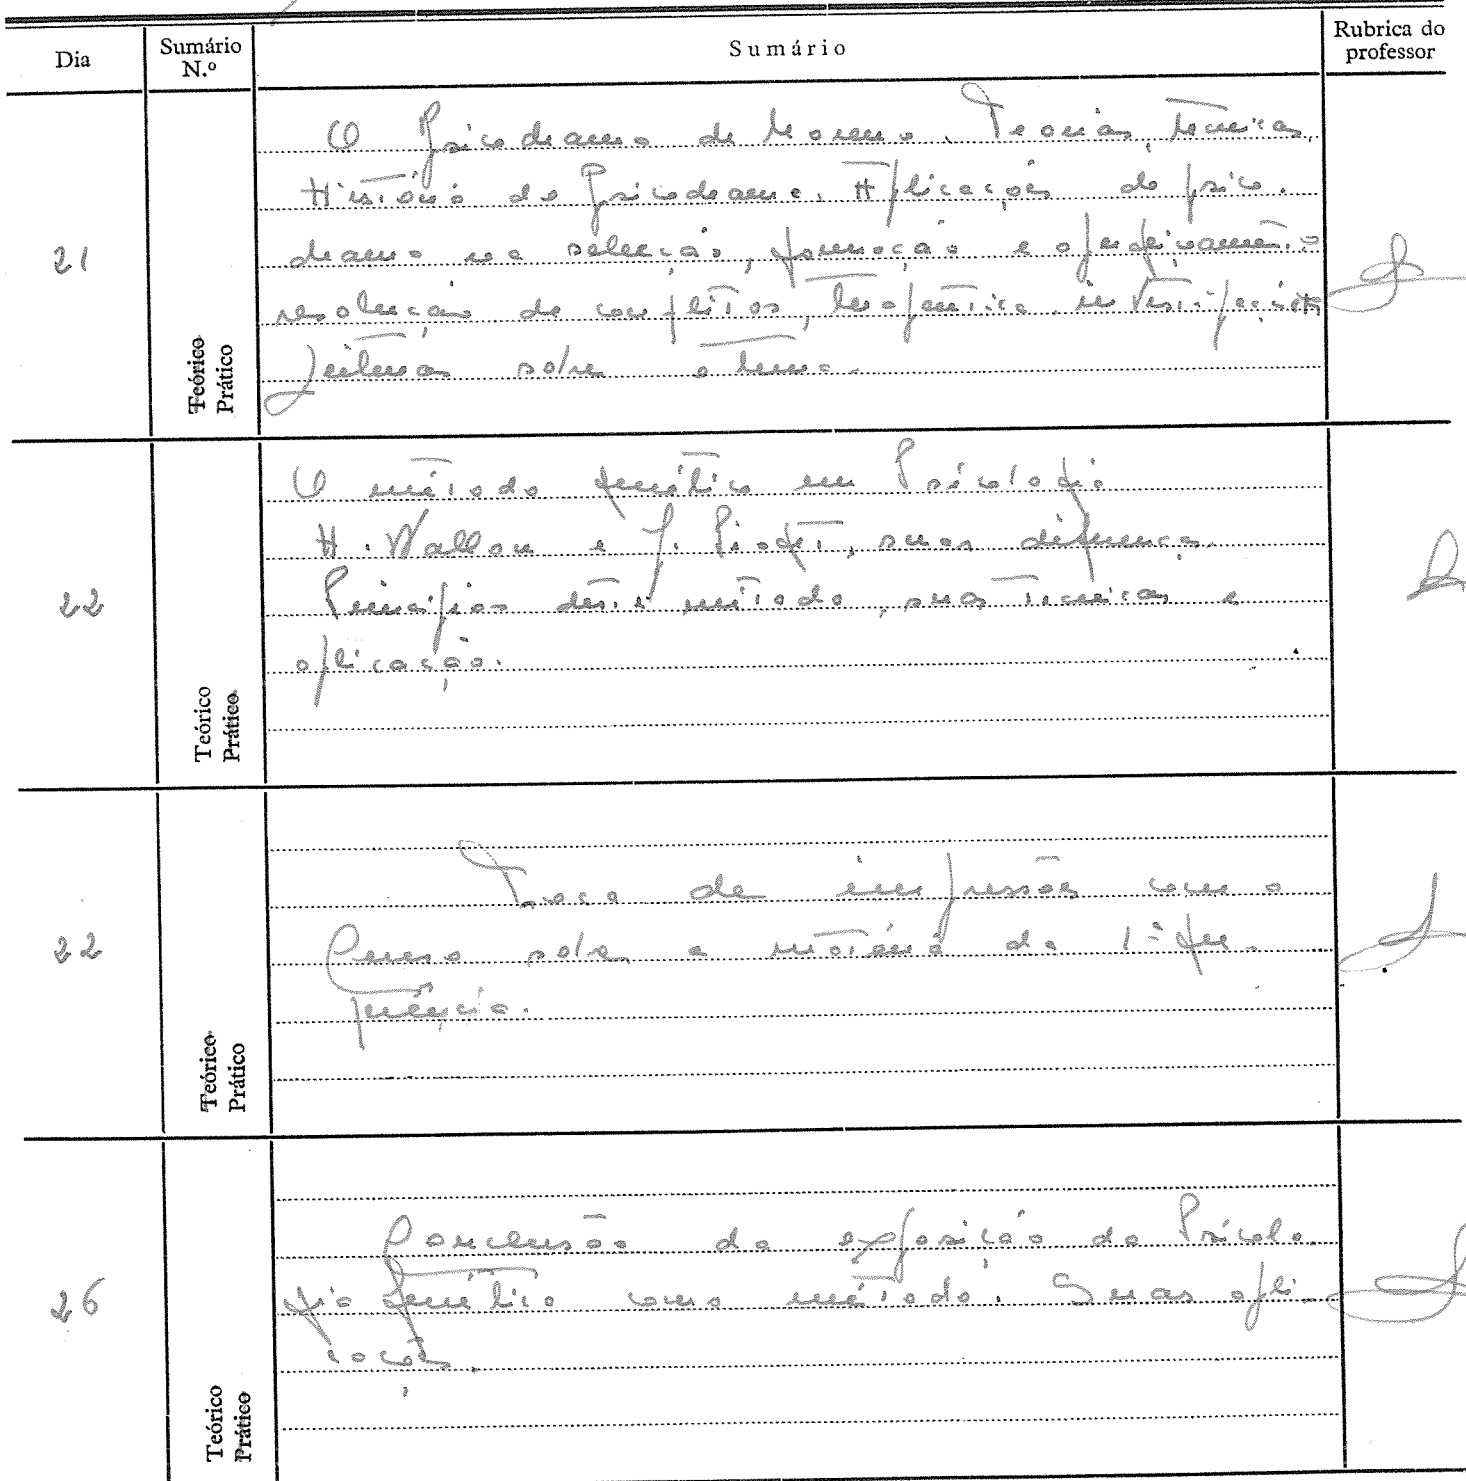 Dia
Sumário N.º
Sumário
Rubrica do professor
21
Teórico
Prático
O Psicodrama de Moreno. Teorias, técnicas,
História do Psicodrama. Aplicações do psico-
drama na selecção, formação e aperfeiçoamento
resolução de conflitos, terapêutica, investigação
Leituras sobre o tema.
22
Teórico
Prático
O método genético em Psicologia
H. Wallon e J. Piaget, suas diferenças.
Princípios deste método, suas técnicas e
aplicação.
22
Teórico
Prático
Troca de impressões com o
Curso sobre a matéria da 1ª fre-
quência.
26
Teórico
Prático
Conclusão da exposição da Psicolo-
gia Genética como método. Suas apli-
cações.